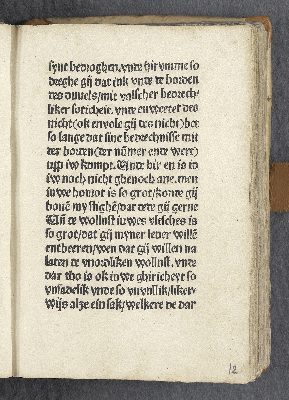 synt bedroghen. vnde hir vmme so
dreghe gij dat iuk vnde te boeden
des duuels/mit valscher bedrech-
liker soticheit. vnde en weetet des
nicht(ok en vole gij des nicht)bet
so lange dat sine bedrechnisse mit
der boeten(der nūmer ende were)
vpp iw kumpt. Vnde hir en is io
iw noch nicht ghenoch ane. men
iuwe homot is so grot/konde gij
bouē my stighē/dat dede gij gerne
Vñ te wollust iuwes vlesches is
so grot/dat gij myner leuer willē
entbeeren/wen dat gij willen na
laten te vnordliken wollust. vnde
dar tho is ok iuwe ghiricheyt so
vnsadelik vnde so vnvullik/liker-
wijs alze ein sak/welkere de dar
12